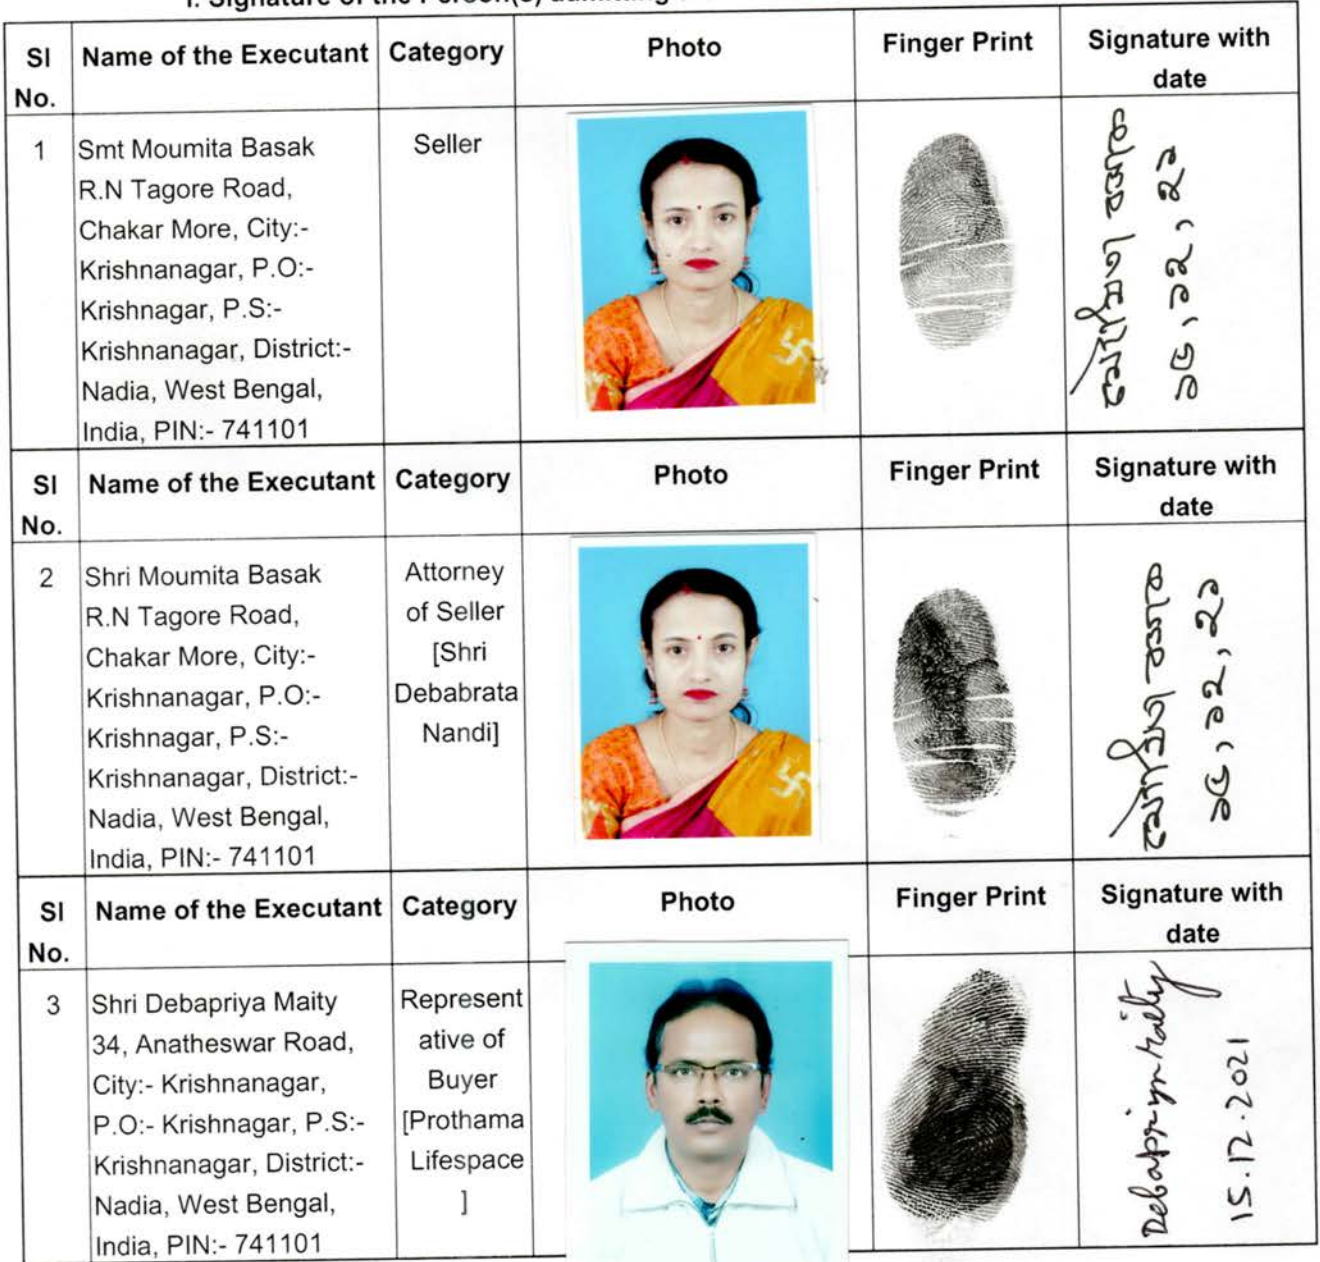 I. Signature of the Person(s) admitting
Sl No.
Name of the Executant
Category
Photo
Finger Print
Signature with date
1
Smt Moumita Basak
R.N Tagore Road,
Chakar More, City:-
Krishnanagar, P.O:-
Krishnagar, P.S:-
Krishnanagar, District:-
Nadia, West Bengal,
India, PIN:- 741101
Seller
মৌমিতা বসাক
১৫, ১২, ২১
Sl No.
Name of the Executant
Category
Photo
Finger Print
Signature with date
2
Shri Moumita Basak
R.N Tagore Road,
Chakar More, City:-
Krishnanagar, P.O:-
Krishnagar, P.S:-
Krishnanagar, District:-
Nadia, West Bengal,
India, PIN:- 741101
Attorney
of Seller
[Shri
Debabrata
Nandi]
মৌমিতা বসাক
১৫, ১২, ২১
Sl No.
Name of the Executant
Category
Photo
Finger Print
Signature with date
3
Shri Debapriya Maity
34, Anatheswar Road,
City:- Krishnanagar,
P.O:- Krishnagar, P.S:-
Krishnanagar, District:-
Nadia, West Bengal,
India, PIN:- 741101
Represent
ative of
Buyer
[Prothama
Lifespace
]
Debapriya Maity
15.12.2021